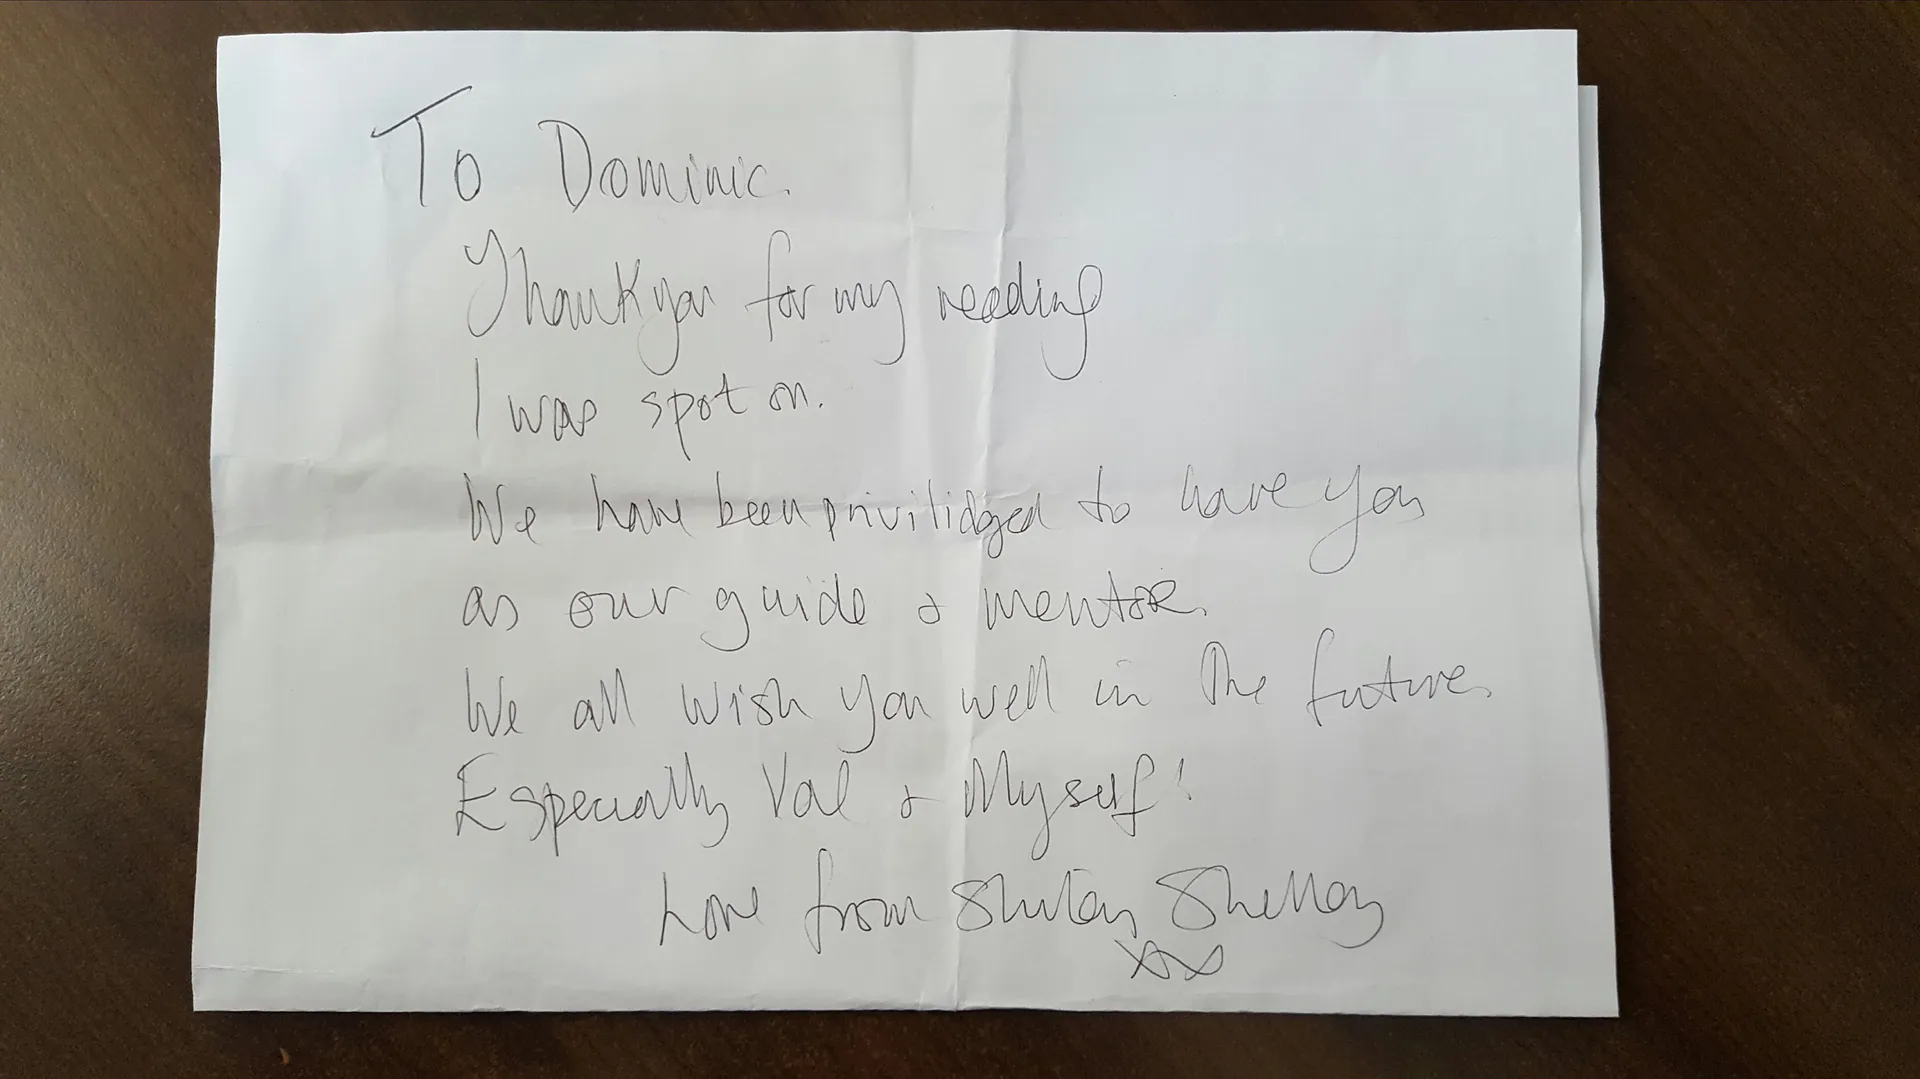 To Dominic.
Thankyou for my reading
I was spot on.
We have been privilidged to have you
as our guide & mentor.
We all wish you well in the future.
Especially Val & Myself!
Love from Shelley
xxx